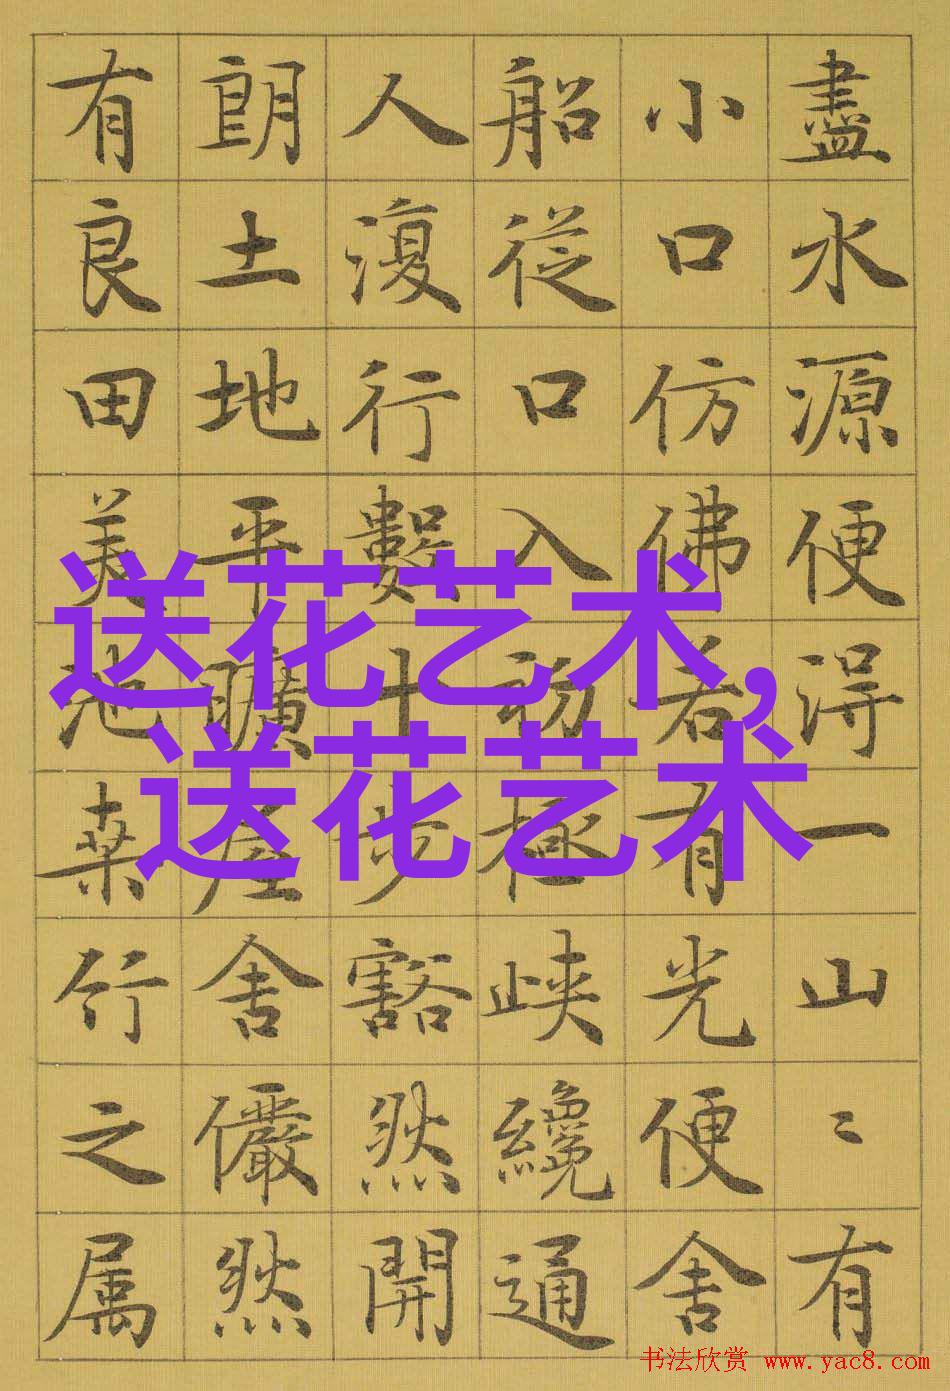 盡水源便得一山〻有
小口仿佛若有光便舍
船從口入初極峽纔通
人復行數十步豁然開
朗土地平曠屋舍儼然
有良田美池桑竹之属
送花艺术,
送花艺术
书法欣赏 www.yac8.com